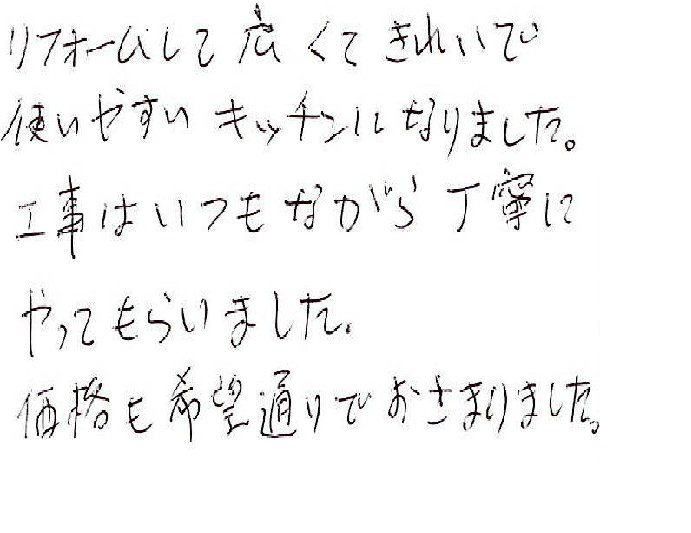 リフォームして広くてきれいで
使いやすいキッチンになりました。
工事はいつもながら丁寧に
やってもらいました。
価格も希望通りでおさまりました。